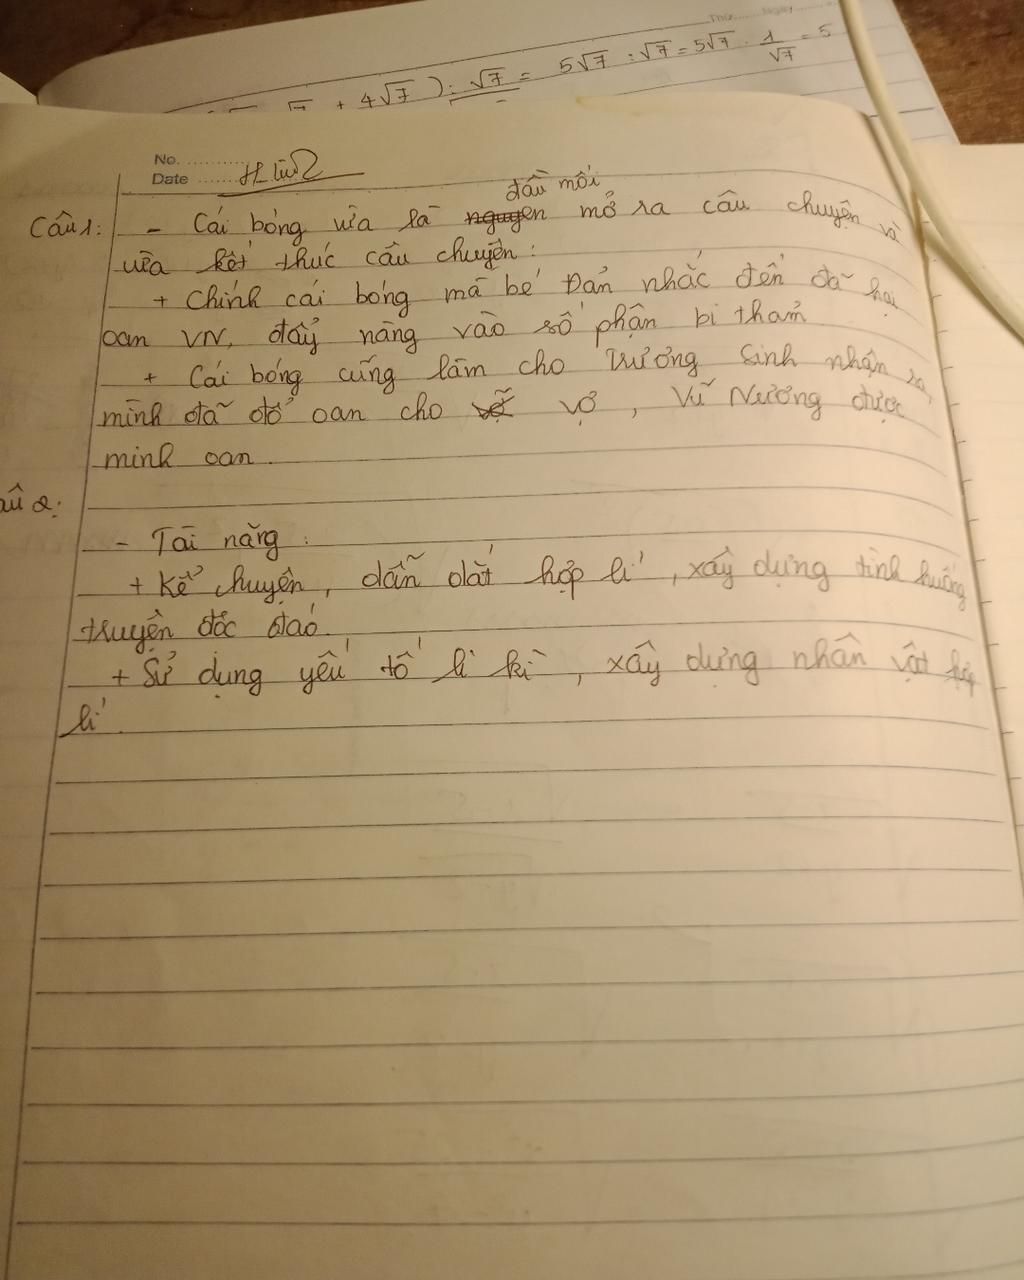 Thứ Ngày
+ 4√7 ) : √7 = 5√7 : √7 = 5√7 . 1/√7 = 5
No.
Date
đầu mối
Câu 1: - Cái bóng vừa là nguyen mở ra câu chuyện và
vừa kết thúc câu chuyện :
+ Chính cái bóng mà bé Đản nhắc đến đã hại
oan VN, đẩy nàng vào số phận bi thảm
+ Cái bóng cũng làm cho Trương Sinh nhận ra
mình đã đổ oan cho vợ , Vũ Nương được
minh oan.
âu 2:
- Tài năng :
+ Kể chuyện, dẫn dắt hợp lí , xây dựng tình huống
truyện độc đáo.
+ Sử dụng yếu tố li kì , xây dựng nhân vật hợp
lí.